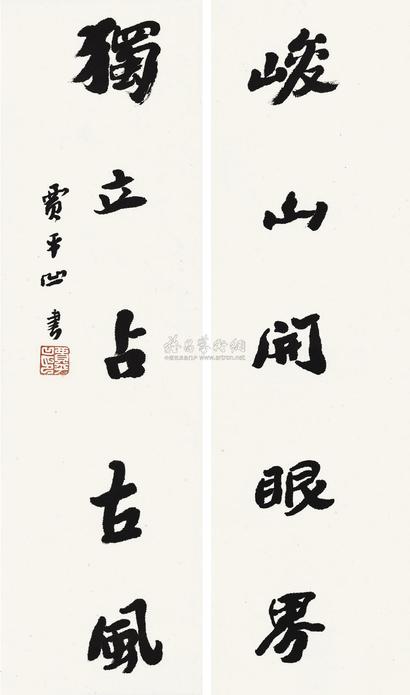 峻山開眼界
獨立占古風
賈平凹書
www.artron.net